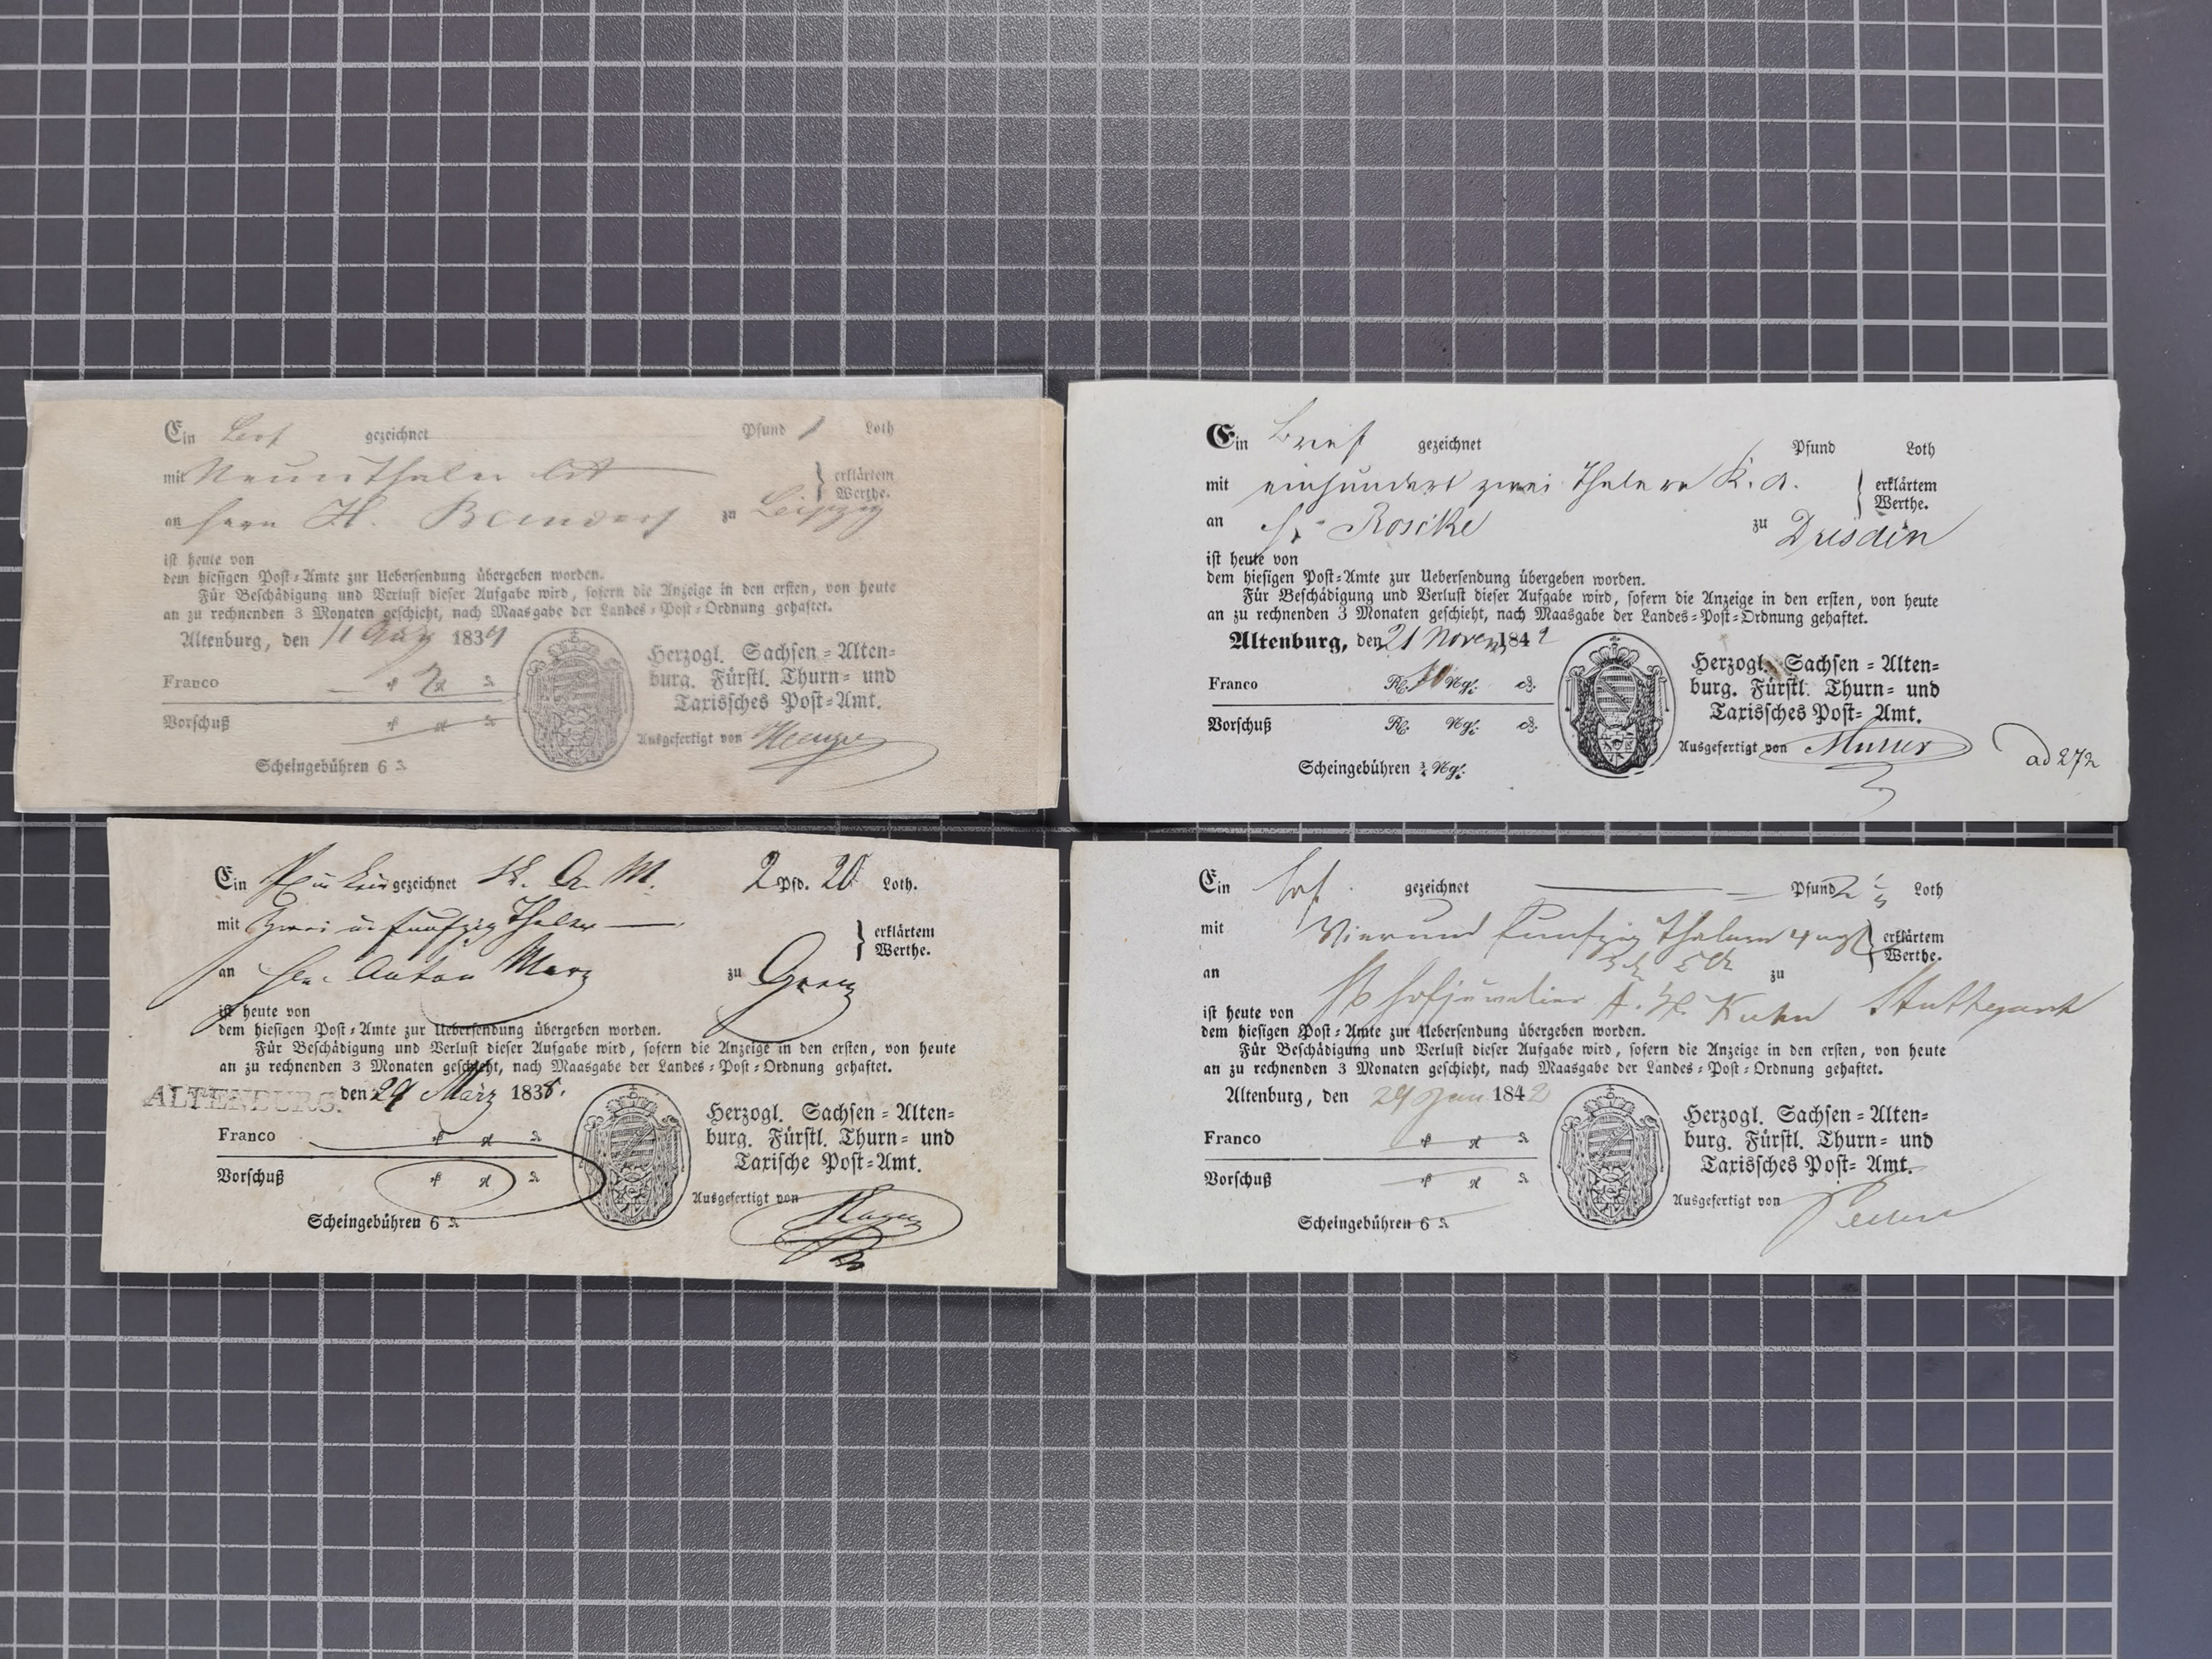 Ein gezeichnet Pfund 1 Loth
mit Neun Thaler
erklärtem
Werthe.
an Herrn H. zu Leipzig
ist heute von
dem hiesigen Post-Amte zur Uebersendung übergeben worden.
Für Beschädigung und Verlust dieser Aufgabe wird, sofern die Anzeige in den ersten, von heute
an zu rechnenden 3 Monaten geschieht, nach Maasgabe der Landes-Post-Ordnung gehaftet.
Altenburg, den 183
Herzogl. Sachsen-Alten-
burg. Fürstl. Thurn- und
Taxissches Post-Amt.
Franco
Vorschuß
Ausgefertigt von
Scheingebühren 6
Ein Brief gezeichnet Pfund Loth
mit einhundert zwei Thalern K. A.
erklärtem
Werthe.
an Roscke zu Dresden
ist heute von
dem hiesigen Post-Amte zur Uebersendung übergeben worden.
Für Beschädigung und Verlust dieser Aufgabe wird, sofern die Anzeige in den ersten, von heute
an zu rechnenden 3 Monaten geschieht, nach Maasgabe der Landes-Post-Ordnung gehaftet.
Altenburg, den 21 Novem 184
Herzogl. Sachsen-Alten-
burg. Fürstl. Thurn- und
Taxissches Post-Amt.
Franco Ngr.
Vorschuß Ngr.
Ausgefertigt von
Scheingebühren Ngr.
ad 272
Ein gezeichnet A. M. 2 Pfd. 20 Loth.
mit Zwei u fünfzig Thaler
erklärtem
Werthe.
an Anton März zu
ist heute von
dem hiesigen Post-Amte zur Uebersendung übergeben worden.
Für Beschädigung und Verlust dieser Aufgabe wird, sofern die Anzeige in den ersten, von heute
an zu rechnenden 3 Monaten geschieht, nach Maasgabe der Landes-Post-Ordnung gehaftet.
ALTENBURG. den 29 März 1838.
Herzogl. Sachsen-Alten-
burg. Fürstl. Thurn- und
Taxische Post-Amt.
Franco
Vorschuß
Ausgefertigt von
Scheingebühren 6
Ein gezeichnet Pfund 2 Loth
mit Vierund fünfzig Thalern 4 ngr
erklärtem
Werthe.
an Hofjuwelier Kuhn zu Stuttgart
ist heute von
dem hiesigen Post-Amte zur Uebersendung übergeben worden.
Für Beschädigung und Verlust dieser Aufgabe wird, sofern die Anzeige in den ersten, von heute
an zu rechnenden 3 Monaten geschieht, nach Maasgabe der Landes-Post-Ordnung gehaftet.
Altenburg, den 29 Jan 1842
Herzogl. Sachsen-Alten-
burg. Fürstl. Thurn- und
Taxissches Post-Amt.
Franco
Vorschuß
Ausgefertigt von
Scheingebühren 6